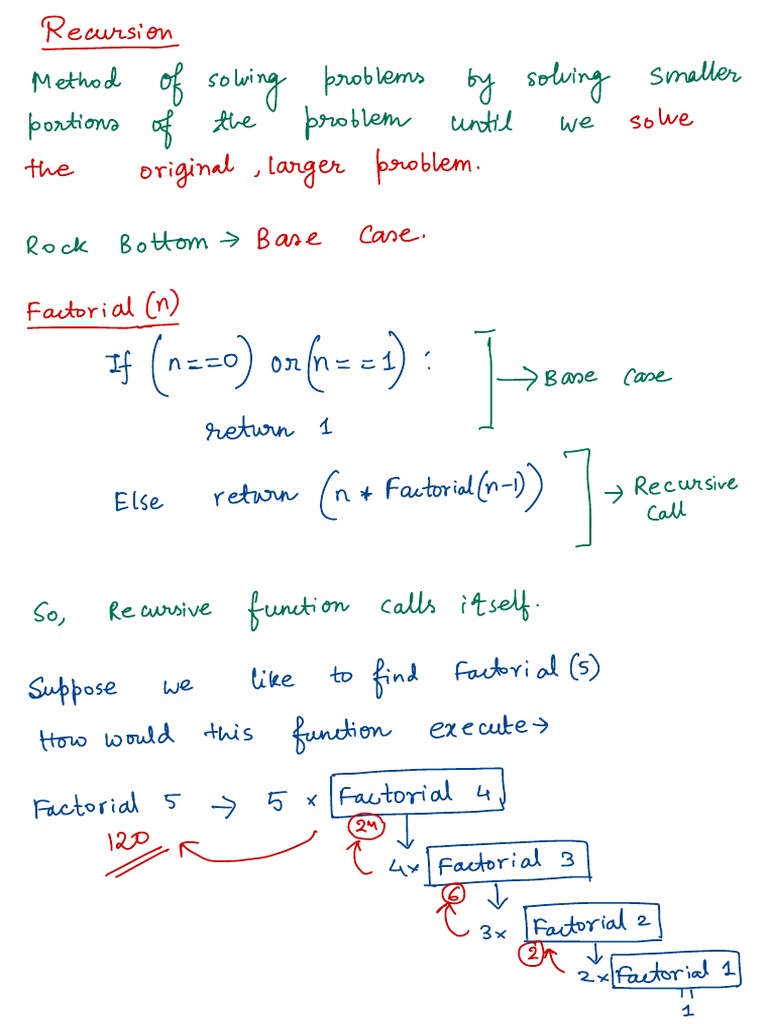 Recursion
Method of solving problems by solving smaller
portions of the problem until we solve
the original, larger problem.
Rock Bottom → Base Case.
Factorial (n)
If (n==0) or (n==1) :
→ Base Case
return 1
Else return (n * Factorial(n-1))
→ Recursive
Call
So, Recursive function calls itself.
Suppose we like to find Factorial (5)
How would this function execute →
Factorial 5 → 5 × Factorial 4
120
24
4× Factorial 3
6
3× Factorial 2
2
2× Factorial 1
1